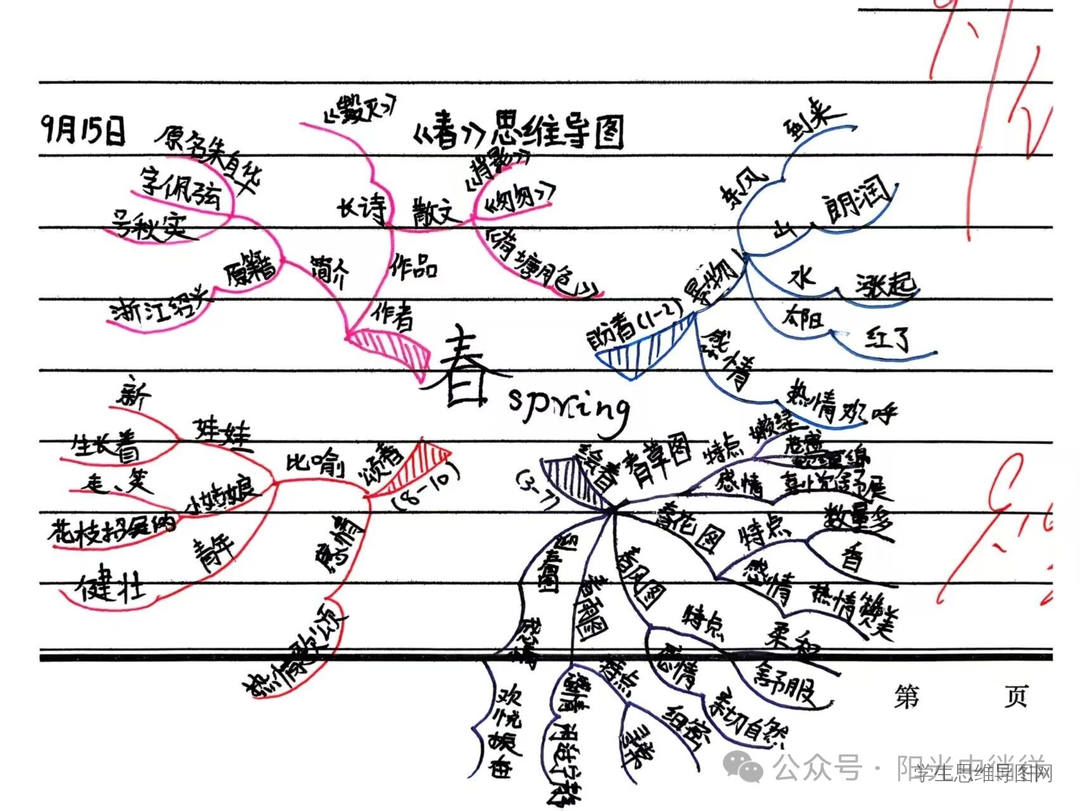 9月15日
《春》思维导图
春
spring
作者
简介
原名朱自华
字佩弦
号秋实
原籍
浙江绍兴
作品
长诗
《毁灭》
散文
《背影》
《匆匆》
《荷塘月色》
盼春(1-2)
景物
东风
到来
山
朗润
水
涨起
太阳
红了
感情
热情欢呼
绘春
(3-7)
春草图
特点
嫩绿
感情
喜悦舒展
春花图
特点
数量多
香
感情
热情赞美
春风图
特点
柔和
舒服
感情
亲切自然
春雨图
特点
细密
寻常
感情
闲适宁静
迎春图
感情
欢悦振奋
颂春
(8-10)
比喻
娃娃
新
生长着
小姑娘
走、笑
花枝招展的
青年
健壮
感情
热情歌颂
第 页
公众号·阳光中徜徉
学生思维导图网